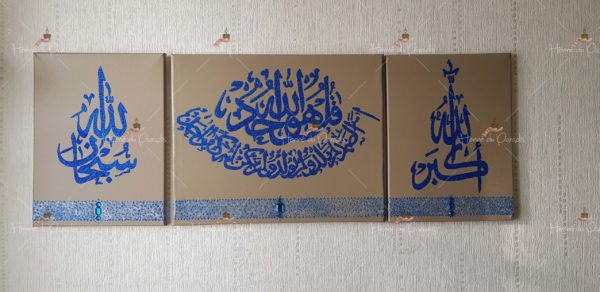 الله
أكبر
قل هو الله أحد
الله الصمد لم يلد ولم يولد ولم يكن له كفوا أحد
سبحان الله